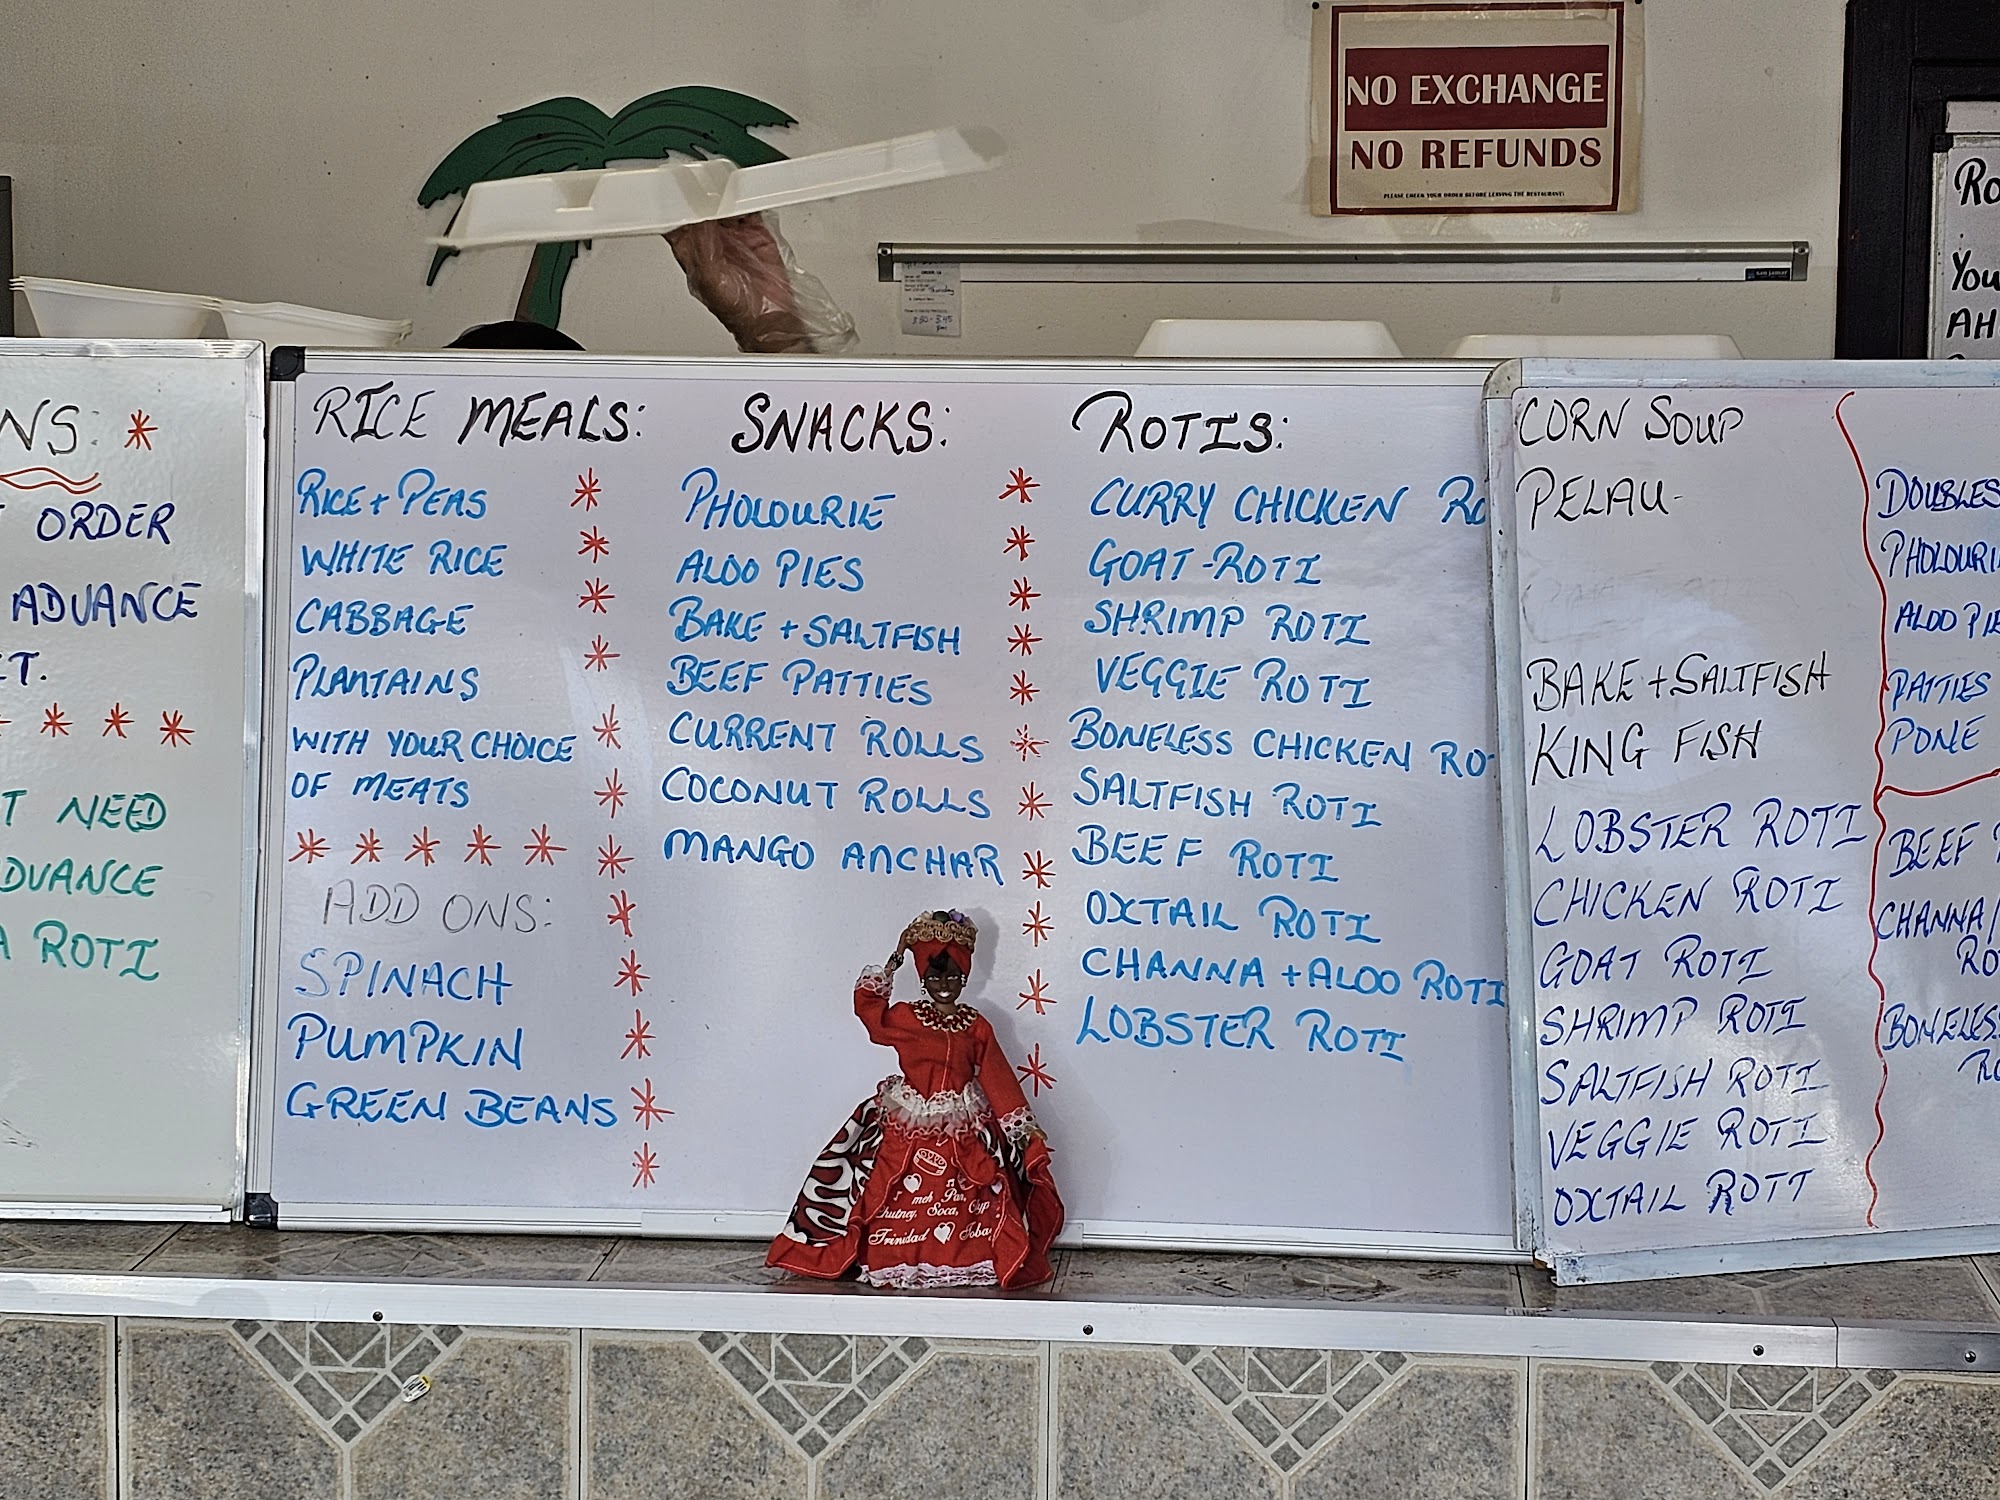 NO EXCHANGE
NO REFUNDS
PLEASE CHECK YOUR ORDER BEFORE LEAVING THE RESTAURANT!
Ro
You
AH
NS:
ORDER
ADVANCE
T.
T NEED
DVANCE
A ROTI
RICE MEALS:
RICE + PEAS
WHITE RICE
CABBAGE
PLANTAINS
WITH YOUR CHOICE
OF MEATS
ADD ONS:
SPINACH
PUMPKIN
GREEN BEANS
SNACKS:
PHOLOURIE
ALOO PIES
BAKE + SALTFISH
BEEF PATTIES
CURRENT ROLLS
COCONUT ROLLS
MANGO ANCHAR
ROTIS:
CURRY CHICKEN RO
GOAT-ROTI
SHRIMP ROTI
VEGGIE ROTI
BONELESS CHICKEN RO
SALTFISH ROTI
BEEF ROTI
OXTAIL ROTI
CHANNA + ALOO ROTI
LOBSTER ROTI
CORN SOUP
PELAU-
BAKE + SALTFISH
KING FISH
LOBSTER ROTI
CHICKEN ROTI
GOAT ROTI
SHRIMP ROTI
SALTFISH ROTI
VEGGIE ROTI
OXTAIL ROTI
DOUBLES
PHOLOURI
ALOO PIE
PATTIES
PONE
BEEF
CHANNA/
RO
BONELESS
RO
meh Pan,
Chutney, Soca,
Trinidad Toba
3:30 - 3:45
pm